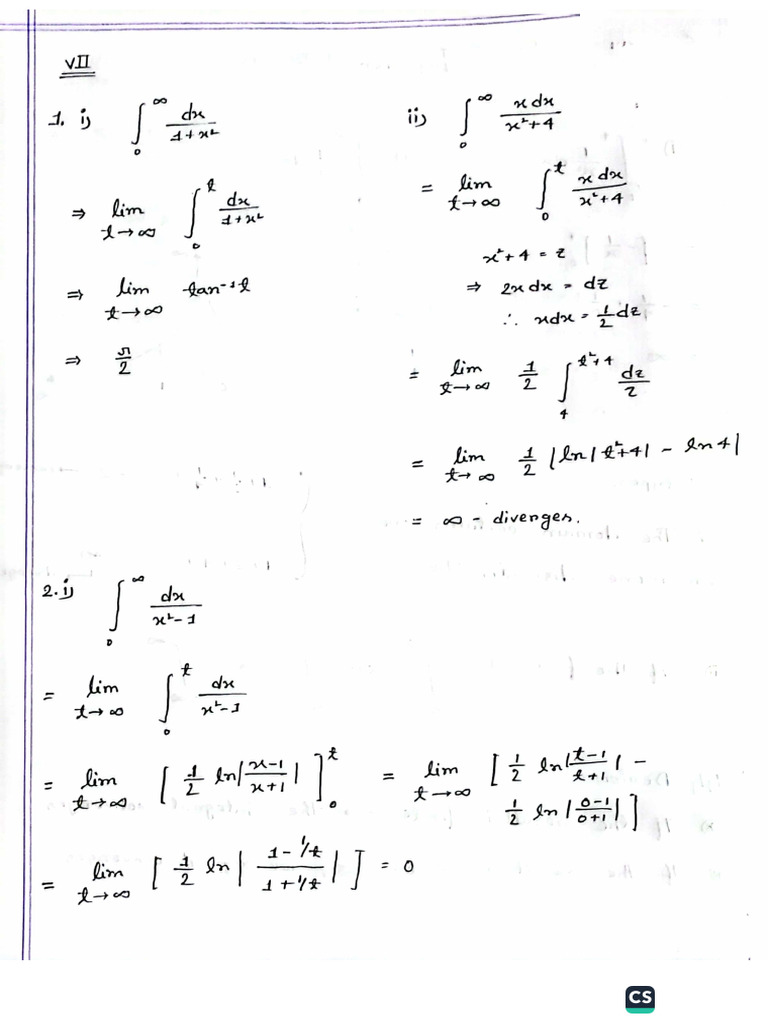 VII
1. i) ∫₀^∞ dx/(1+x²)
⇒ lim t→∞ ∫₀^t dx/(1+x²)
⇒ lim t→∞ tan⁻¹t
⇒ π/2
ii) ∫₀^∞ x dx/(x²+4)
= lim t→∞ ∫₀^t x dx/(x²+4)
x²+4 = z
⇒ 2x dx = dz
∴ xdx = 1/2 dz
= lim t→∞ 1/2 ∫₄^(t²+4) dz/z
= lim t→∞ 1/2 |ln|t²+4| - ln4|
= ∞ - diverges.
2. i) ∫₀^∞ dx/(x²-1)
= lim t→∞ ∫₀^t dx/(x²-1)
= lim t→∞ [1/2 ln|(x-1)/(x+1)|]₀^t = lim t→∞ [1/2 ln|(t-1)/(t+1)| -
1/2 ln|(0-1)/(0+1)|]
= lim t→∞ [1/2 ln|(1-1/t)/(1+1/t)|] = 0
CS